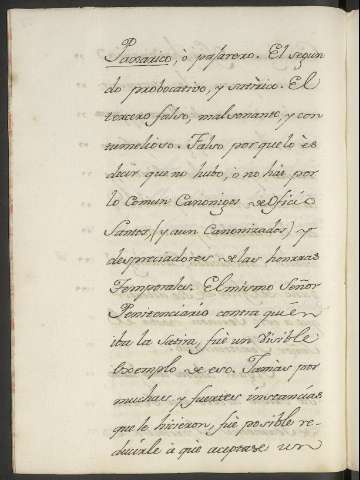 Paxarico, ò pajarero. El segun
do probocativo, y satirico. El
tercero falso, mal sonante, y con
tumelioso. Falso, por que lo es
decir que no hubo, ò no hai por
lo Comun Canonigos de Oficio
Santos, (y aun Canonizados) y
despreciadores de las honrras
Temporales. El mismo Señor
Penitenciario contra quien
iba la Satira, fue un visible
Exemplo de eso. Jamas por
muchas, y fuertes instancias
que le hicieron, fue posible re-
ducirle à que aceptase un